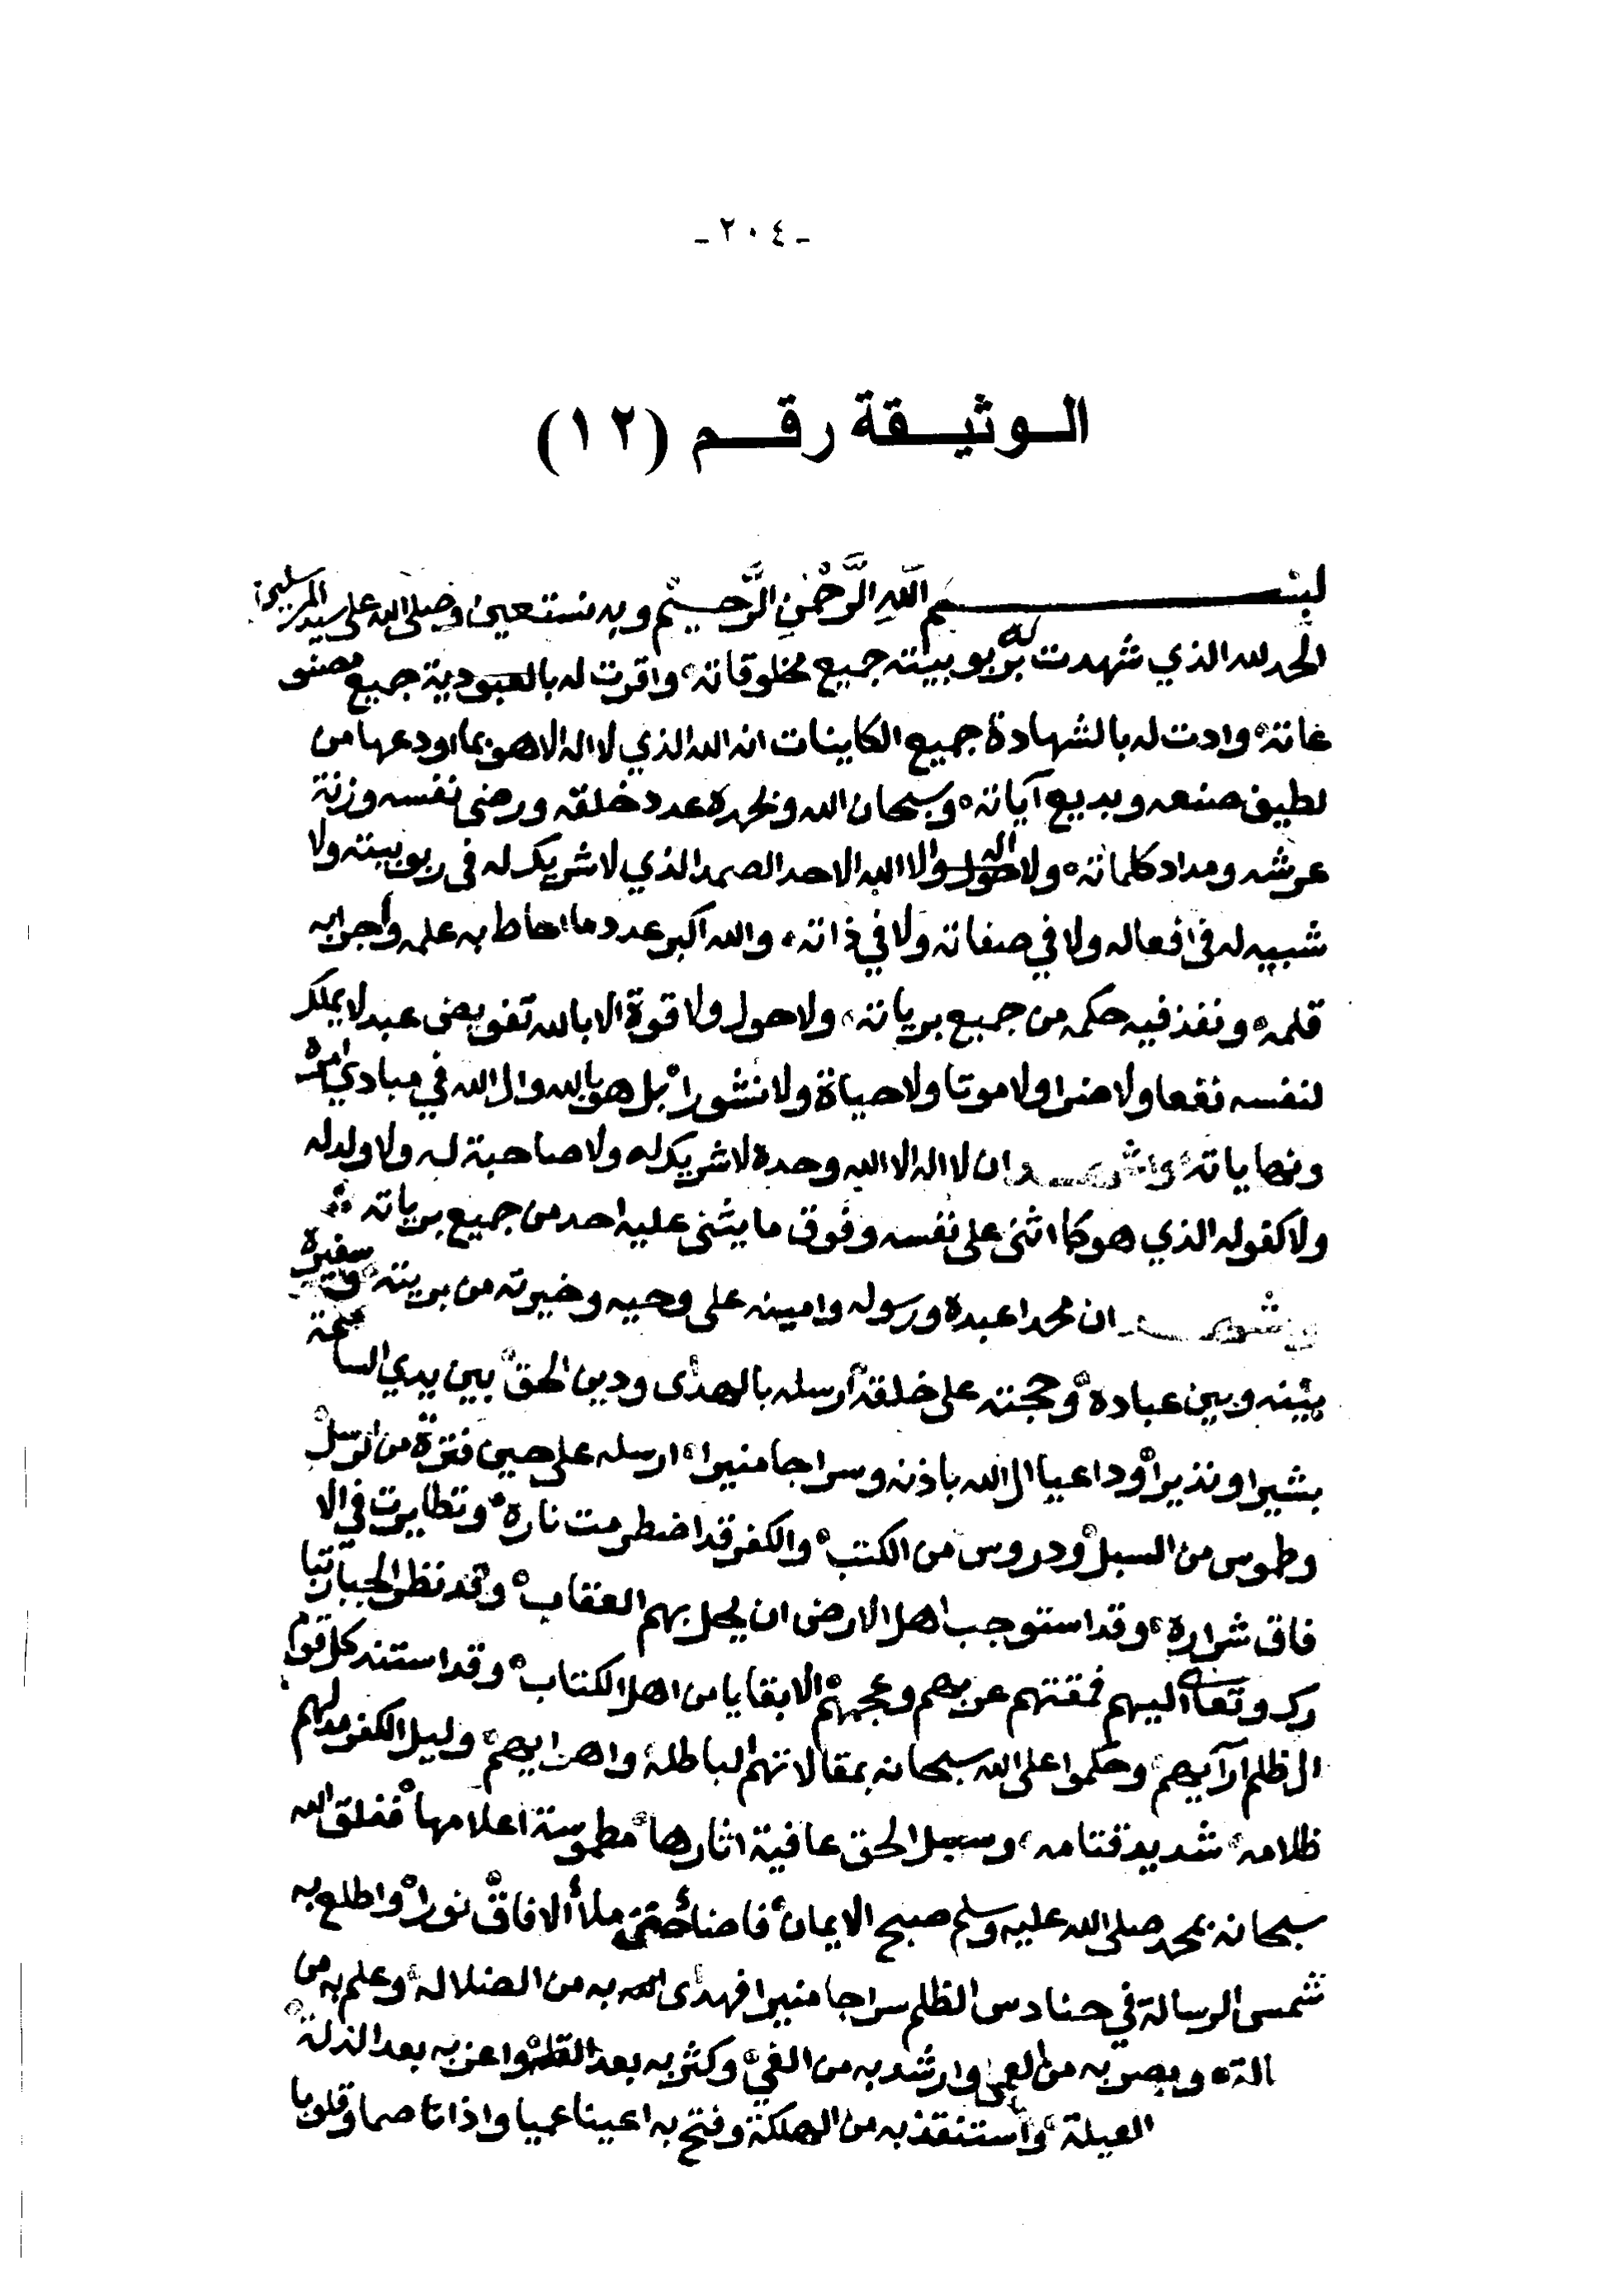 - ٢٠٤ -
الوثيقة رقم (١٢)
بسم اللهِ الرَّحْمٰنِ الرَّحيْم وبه نستعين وصلى الله على سيد المرسلين
الحمد لله الذي شهدت له بربوبيته جميع مخلوقاته واقرت له بالعبودية جميع مصنو
عاته وادت له بالشهادة جميع الكاينات انه الله الذي لا اله الا هو بما اودعها من
لطيف صنعه وبديع آياته وسبحان الله وبحمده عدد خلقه ورضى نفسه وزنة
عرشه ومداد كلماته ولا اله الا الله الاحد الصمد الذي لا شريك له في ربوبيته ولا
شبيه له في افعاله ولا في صفاته ولا في ذاته والله اكبر عدد ما احاط به علمه وأجرى به
قلمه ونفذ فيه حكمه من جميع برياته ولا حول ولا قوة الا بالله تفويض عبد لا يملك
لنفسه نفعا ولا ضرا ولا موتا ولا حياة ولا نشورا بل هو بالله والى الله في مبادي امره
ونهاياته واشهد ان لا اله الا الله وحده لا شريك له ولا صاحبة له ولا ولد له
ولا كفو له الذي هو كما اثنى على نفسه وفوق ما يثنى عليه احد من جميع برياته
واشهد ان محمدا عبده ورسوله وامينه على وحيه وخيرته من بريته وسفيره
بينه وبين عباده وحجته على خلقه أرسله بالهدى ودين الحق بين يدي الساعة
بشيرا ونذيرا وداعيا الى الله باذنه وسراجا منيرا ارسله على حين فترة من الرسل
وطموس من السبل ودروس من الكتب والكفر قد اضطرمت ناره وتطايرت في الا
فاق شراره وقد استوجب اهل الارض ان يحل بهم العقاب وقد نظر الجبار تبا
رك وتعالى اليهم فمقتهم عربهم وعجمهم الا بقايا من اهل الكتاب وقد استند كل قوم
الى ظلم آرآيهم وحكموا على الله سبحانه بمقالاتهم الباطلة واهوايهم وليل الكفر مدلهم
ظلامه شديد قتامه وسبل الحق عافية اثارها مطموسة اعلامها ففلق الله
سبحانه بمحمد صلى الله عليه وسلم صبح الايمان فاضاء حتى ملأ الافاق نورا واطلع به
شمس الرسالة في حنادس الظلم سراجا منيرا فهدى الله به من الضلالة وعلم به من
الة وبصر به من العمى وارشد به من الغي وكثر به بعد القلة واعز به بعد الذلة
العيلة وأستنقذ به من الهلكة وفتح به اعينا عميا واذانا صما وقلوبا